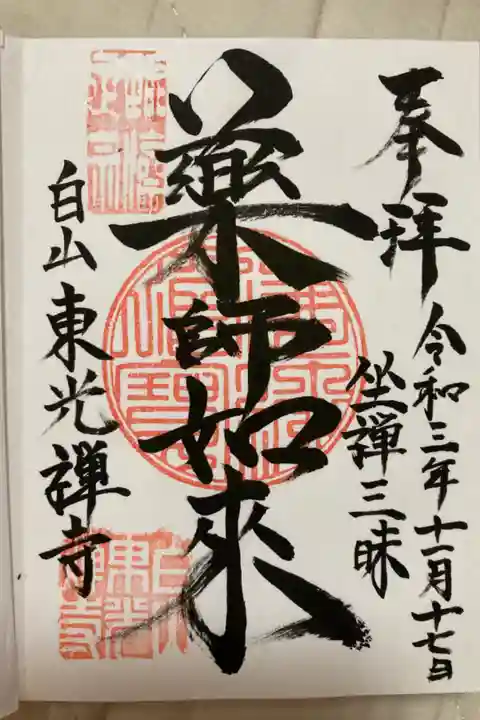 奉拝
令和三年十一月十七日
坐禅三昧
藥師如來
白山東光禪寺